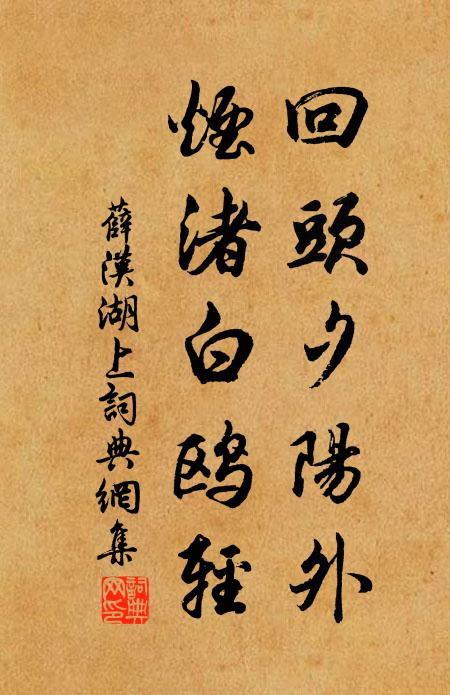 回頭夕陽外
煙渚白鷗輕
薛漢湖上詞典網集
詞典网印